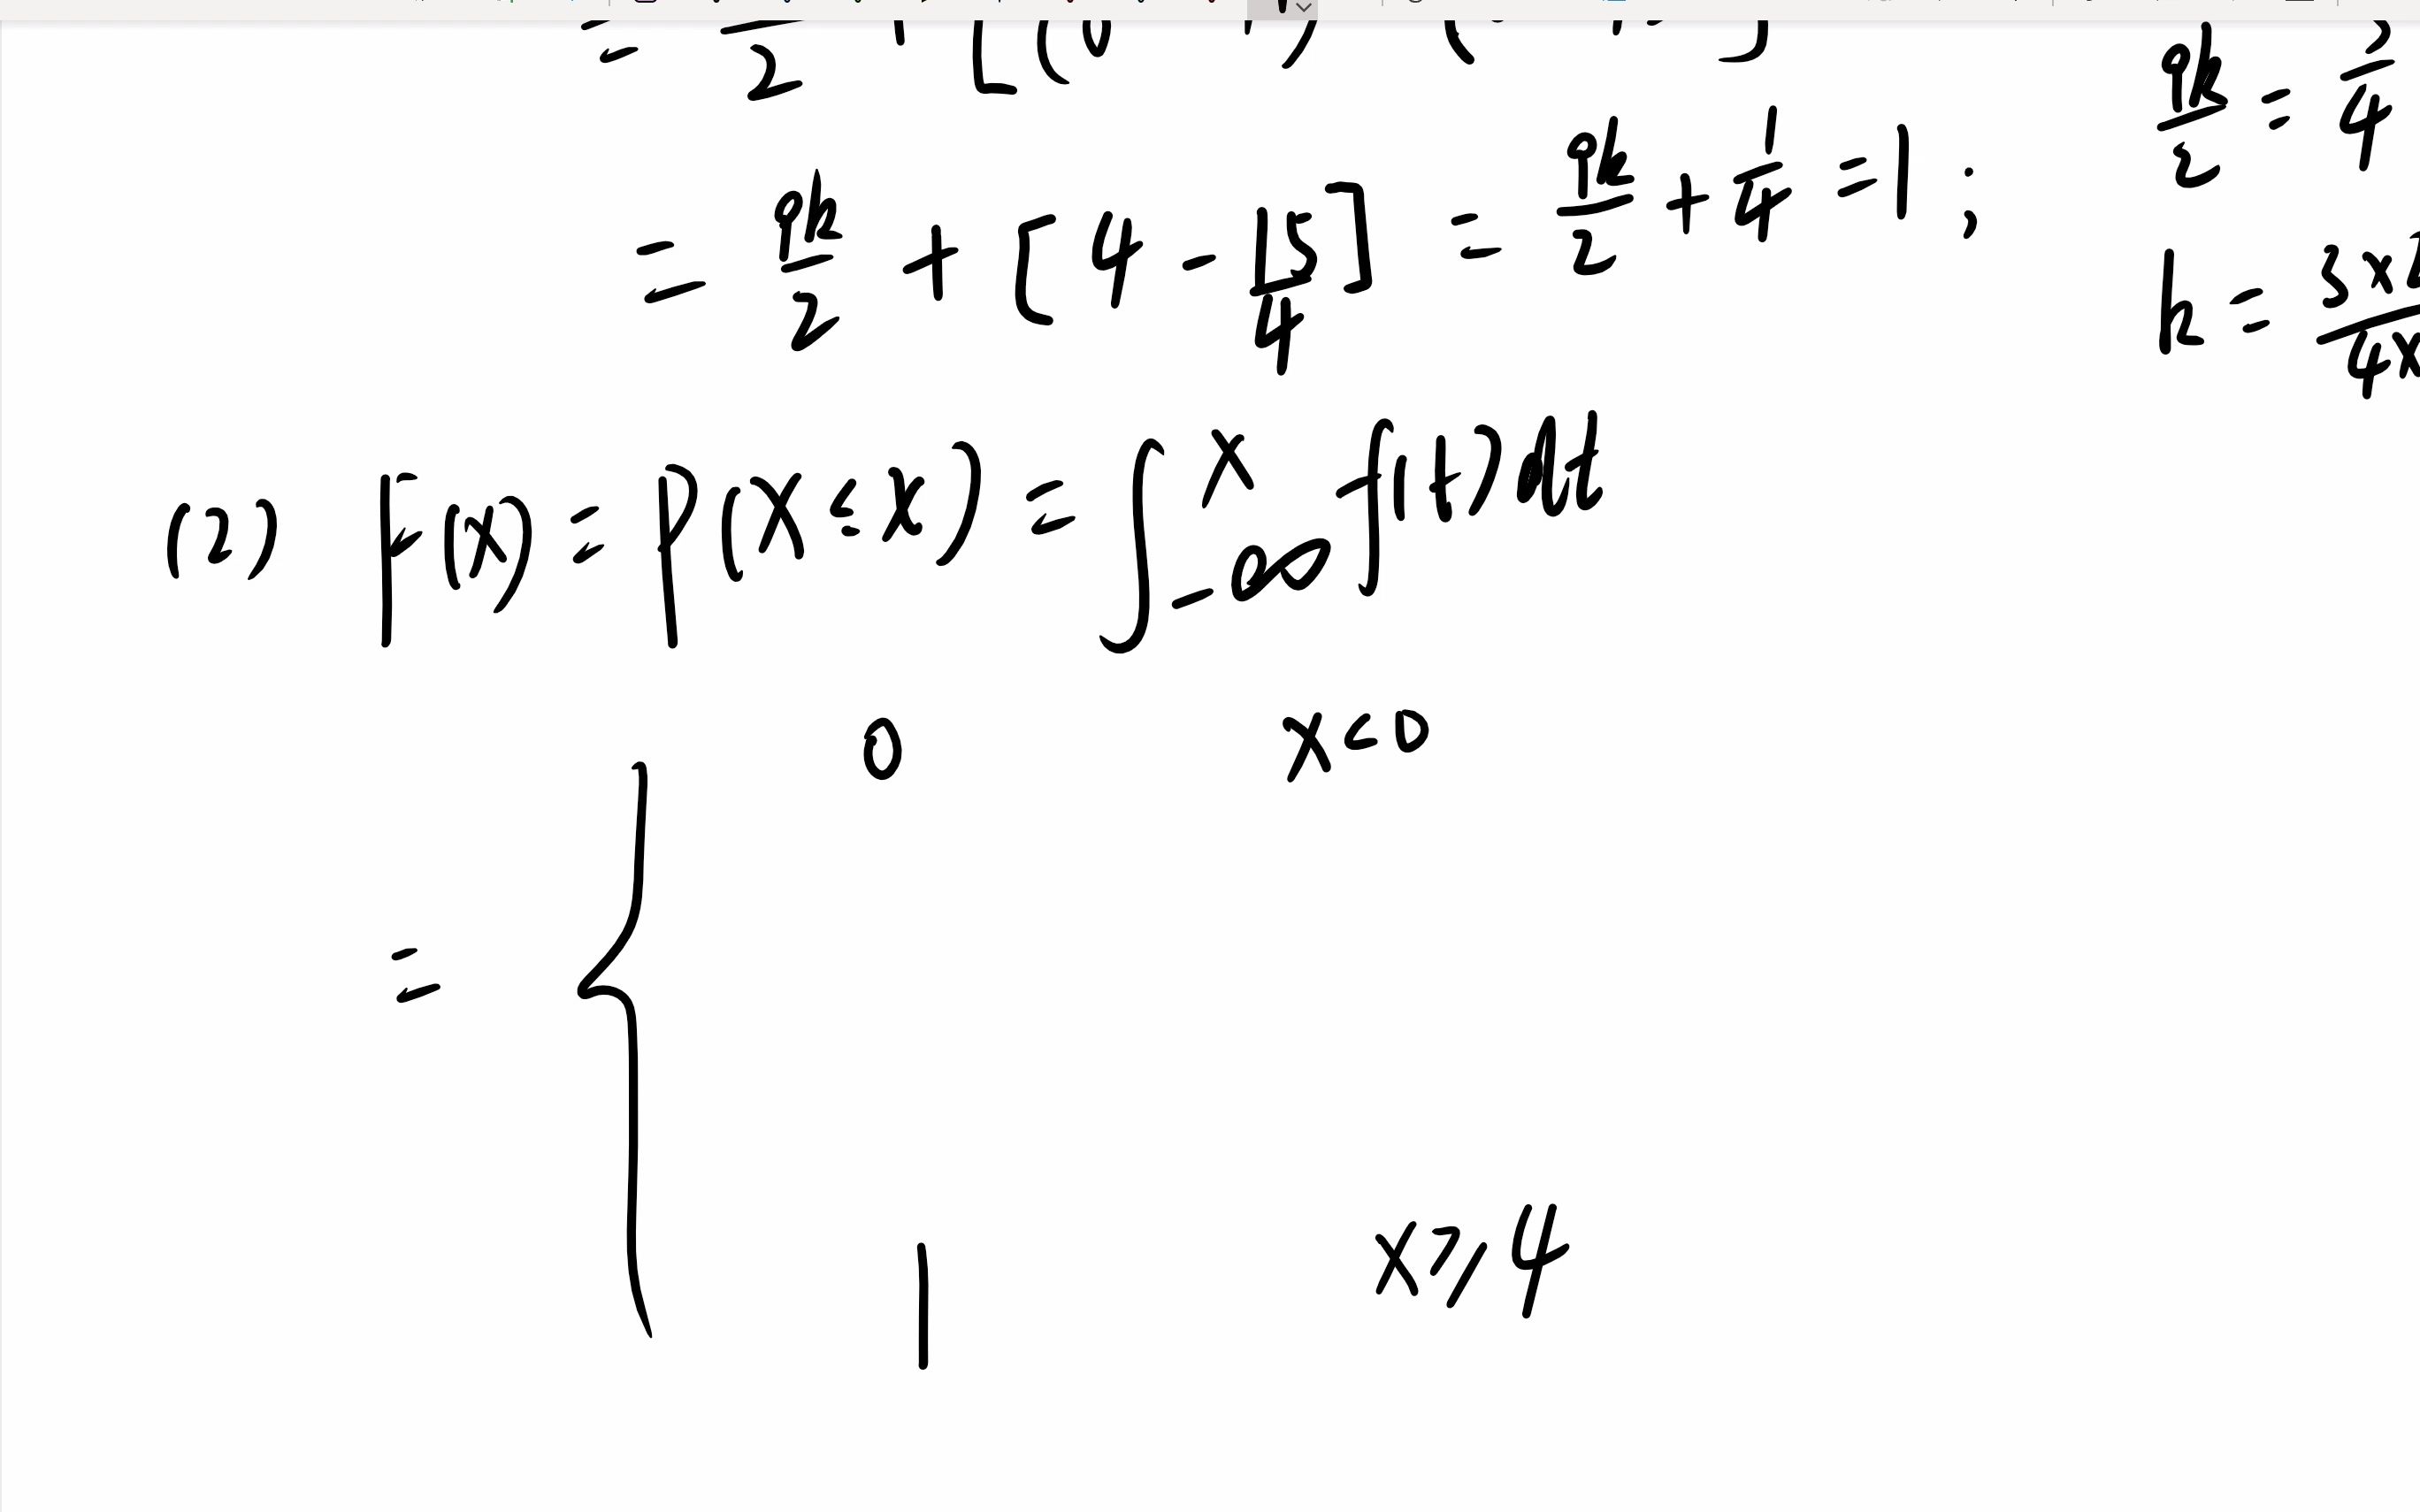 = — 2 + [(8 - 4) - (
= 9k/2 + [4 - 15/4] = 9k/2 + 1/4 = 1 ; 9k/2 = 3/4
k = 3×/4×
(2) F(x) = P(X ≤ x) = ∫_{-∞}^{x} f(t) dt
= {
0 x<0
1 x≥4